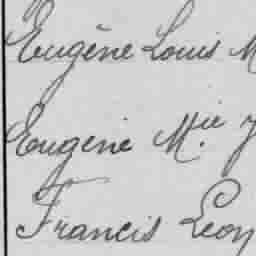 Eugène Louis M
Eugène M.ie J
Francis Léon